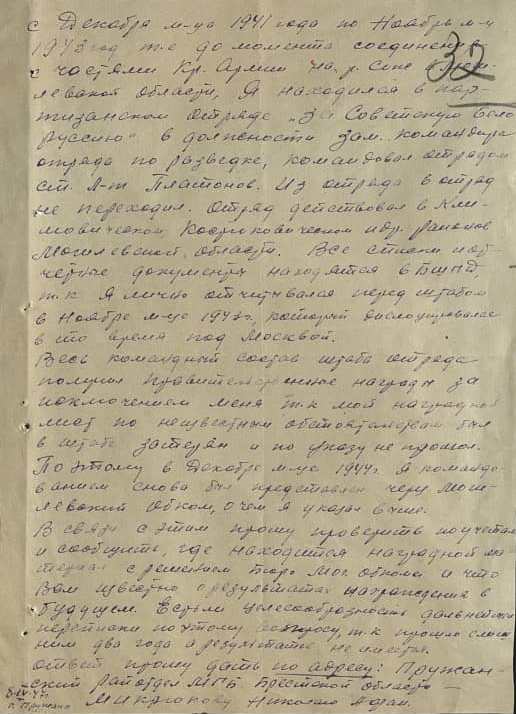 с Декабря м-ца 1941 года по Ноябрь м-ц
1943 год т.е. до момента соединения
с частями Кр. Армии на р. Сож
левской области. Я находился в пар-
тизанском отряде „За Советскую Бело
руссию" в должности зам. командира
отряда по разведке, командовал отрядом
ст. Л-т Платонов. Из отряда в отряд
не переходил. Отряд действовал в Кли-
мовическом, Костюковическом и др. районов
Могилевской области. Все списки и от-
четные документы находятся в БШПД
т.к. Я лично отчитывался перед штабом
в Ноябре м-це 1943г. который дислоцировался
в то время под Москвой.
Весь командный состав штаба отряда
получил правительственные награды за
исключением меня т.к. мой наградной
лист по неизвестным обстоятельствам был
в штабе затерян и по указу не прошел.
Поэтому в Декабре м-це 1944г. Я командо-
ванием снова был представлен через Моги-
левский обком, о чем я указал выше.
В связи с этим прошу проверить по учетам
и сообщить, где находится наградной ма-
териал с решением бюро Мог. обкома и что
Вам известно о результатах награждения в
будущем. Есть ли целесообразность дальнейшей
переписки по этому вопросу, т.к. прошло
ним два года а результатов не имеется.
ответ прошу дать по адресу: Пружан-
ский райотдел МГБ Брестской области –
Микрюкову Николаю
г. Пружаны
32